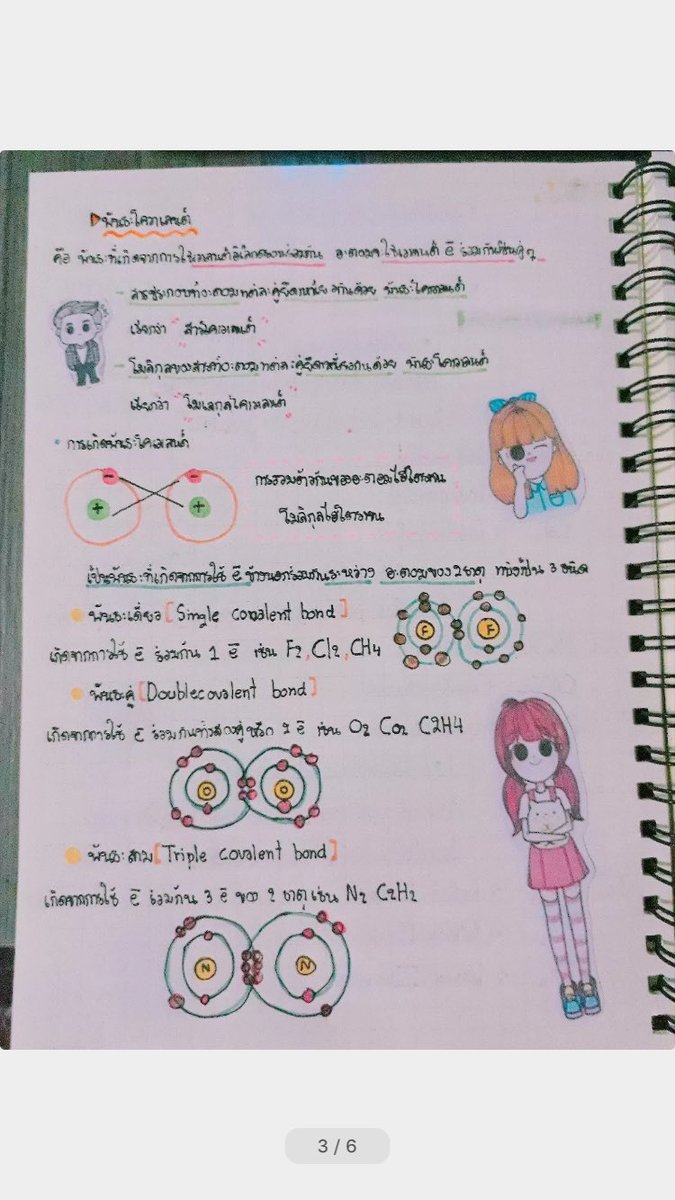 พันธะโควาเลนต์
คือ พันธะที่เกิดจากการใช้เวเลนต์อิเล็กตรอนร่วมกัน อะตอมจะใช้เวเลนต์ e̅ ร่วมกันเป็นคู่ๆ
- สารประกอบที่อะตอมแต่ละคู่ยึดเหนี่ยวกันด้วย พันธะโคเวเลนต์
เรียกว่า "สารโคเวเลนต์"
- โมเลกุลของสารที่อะตอมแต่ละคู่ยึดเหนี่ยวกันด้วย พันธะโคเวเลนต์
เรียกว่า "โมเลกุลโคเวเลนต์"
• การเกิดพันธะโคเวเลนต์
- -
+ +
การรวมตัวกันของอะตอมไฮโดรเจน
โมเลกุลไฮโดรเจน
เป็นพันธะที่เกิดจากการใช้ e̅ ข้างนอกร่วมกันระหว่าง อะตอมของ 2 ธาตุ แบ่งเป็น 3 ชนิด
พันธะเดี่ยว [Single covalent bond]
F F
เกิดจากการใช้ e̅ ร่วมกัน 1 e̅ เช่น F2, Cl2, CH4
พันธะคู่ [Doublecovalent bond]
เกิดจากการใช้ e̅ ร่วมกันทั้งสองคู่ หรือ 2 e̅ เช่น O2 Co2 C2H4
O O
พันธะสาม [Triple covalent bond]
เกิดจากการใช้ e̅ ร่วมกัน 3 e̅ ของ 2 ธาตุ เช่น N2 C2H2
N N
3 / 6